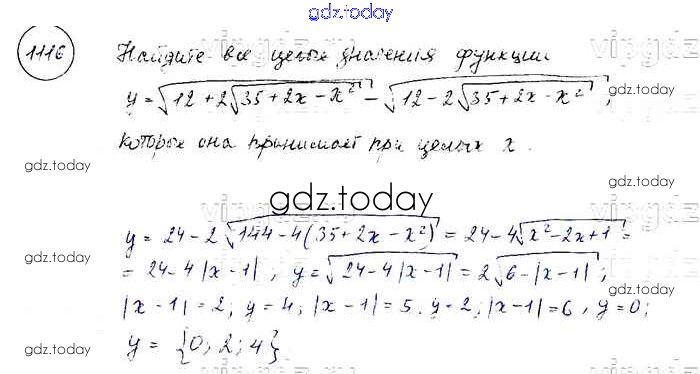 gdz.today
1116 Найдите все целые значения функции
y = √(12 + 2√(35 + 2x − x²)) − √(12 − 2√(35 + 2x − x²)),
gdz.today
gdz.today
которые она принимает при целых x.
gdz.today
gdz.today
y = 24 − 2√(144 − 4(35 + 2x − x²)) = 24 − 4√(x² − 2x + 1) =
gdz.today
gdz.today
= 24 − 4|x − 1|, y = √(24 − 4|x − 1|) = 2√(6 − |x − 1|);
|x − 1| = 2; y = 4; |x − 1| = 5. y = 2; |x − 1| = 6, y = 0;
y = {0; 2; 4}
gdz.today
gdz.today